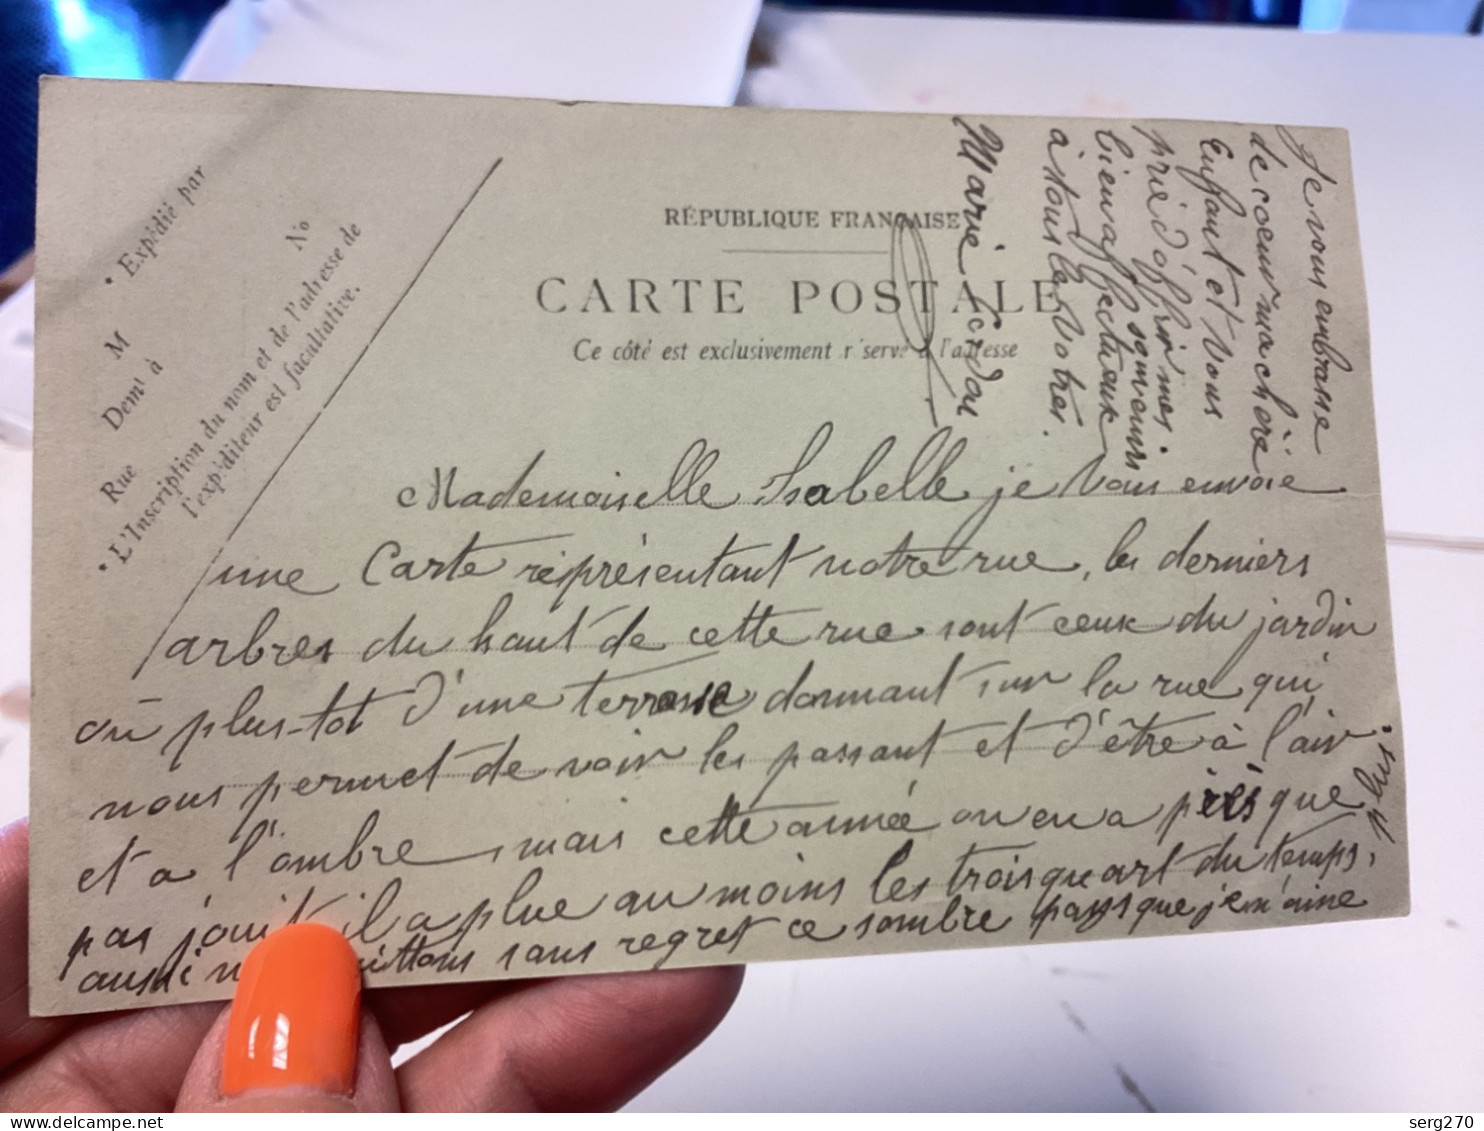 • Expédié par
M
Demt à
Rue
No
• L'Inscription du nom et de l'adresse de
l'expéditeur est facultative.
RÉPUBLIQUE FRANÇAISE
CARTE POSTALE
Ce côté est exclusivement réservé à l'adresse
Mademoiselle Isabelle je vous envoie
une Carte représentant notre rue, les derniers
arbres du haut de cette rue sont ceux du jardin
ou plus-tot d'une terrasse donnant sur la rue qui
nous permet de voir les passant et d'être à l'air
et a l'ombre, mais cette année on en a presque
pas jouit il a plue au moins les trois quart du temps,
aussi quittons sans regret ce sombre pays que je n'aime
Je vous embrasse
de coeur ma chère
Enfant et vous
prie d'offrir mes
bien affectueux souvenirs
à tous les votres.
Marie
serg270